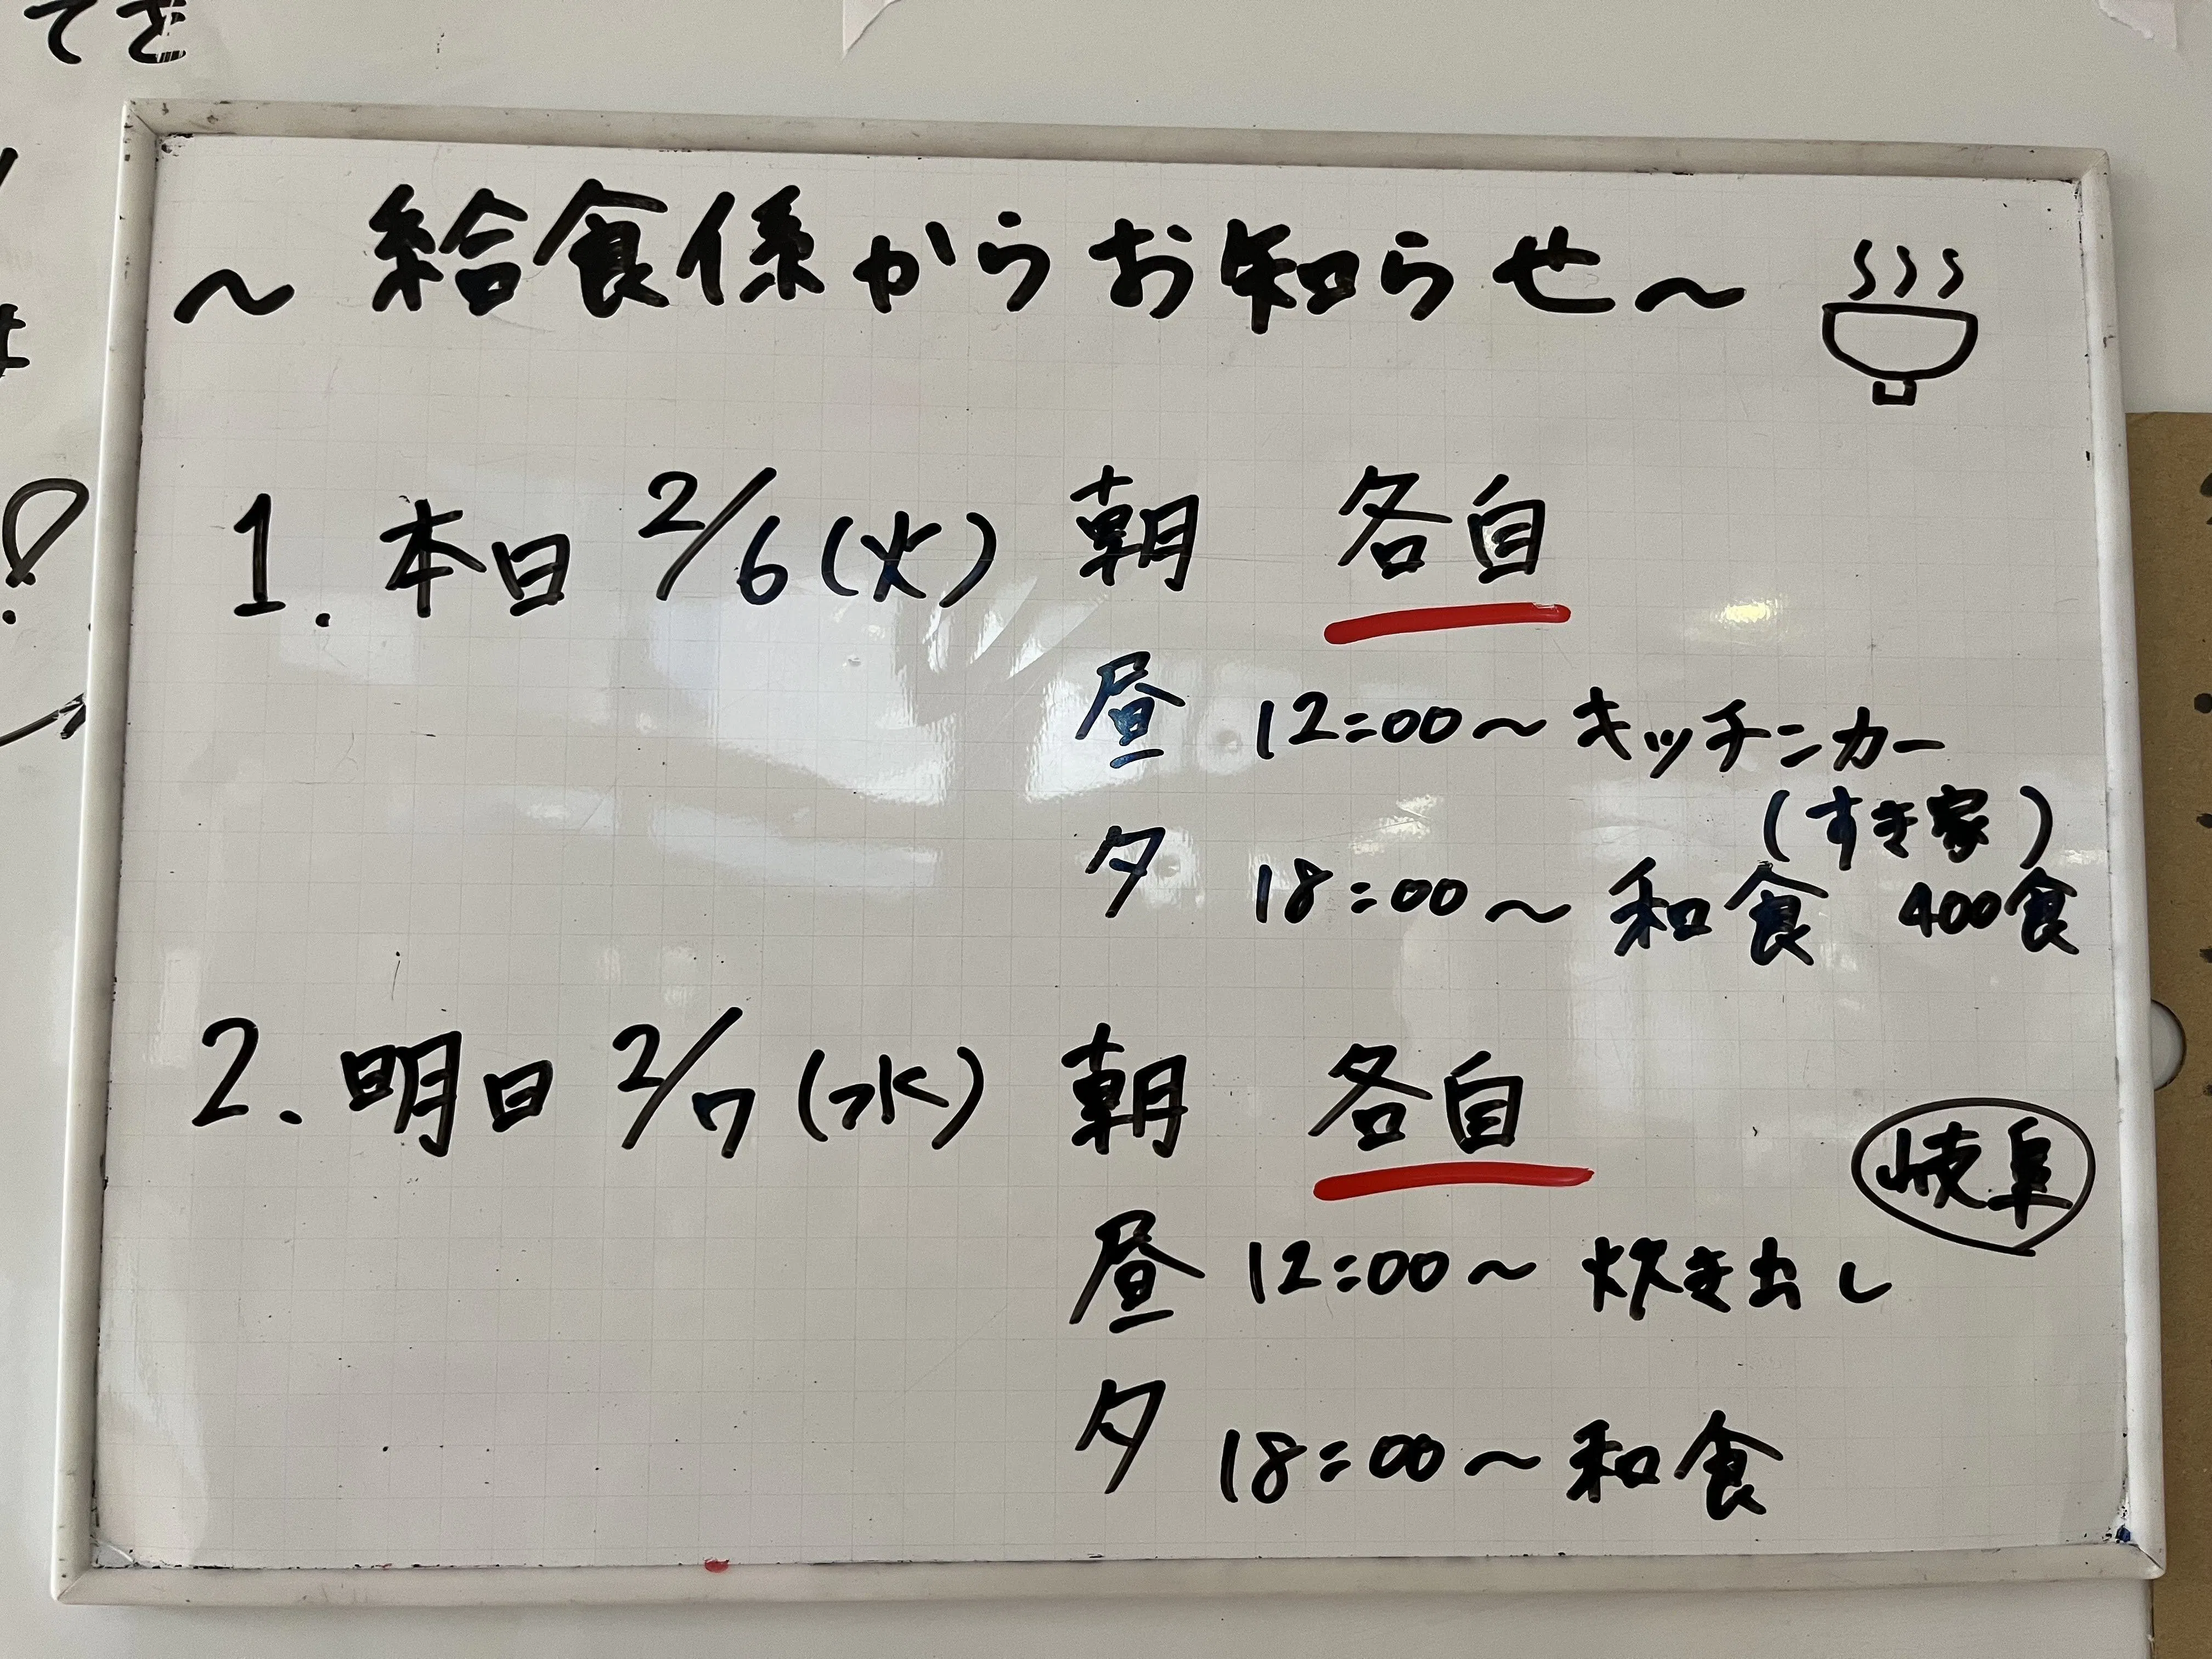 てき
～給食係からお知らせ～
1. 本日 2/6(火) 朝 各自
昼 12:00～キッチンカー
(すき家)
夕 18:00～和食 400食
2. 明日 2/7(水) 朝 各自
岐阜
昼 12:00～炊き出し
夕 18:00～和食